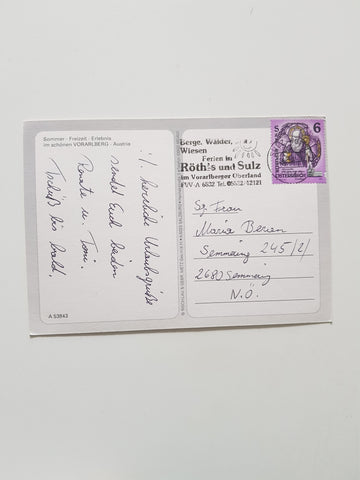 Sommer · Freizeit · Erlebnis
im schönen VORARLBERG · Austria
herrliche Urlaubsgrüße
sendet Euch beiden
Renate u. Toni.
Tschüß bis bald.
A 53843
Berge, Wälder,
Wiesen
Ferien in
Röthis und Sulz
im Vorarlberger Oberland
A 6832 Tel. 05522/42121
5
6
Sg. Frau
Maria Berien
Semmering 245/2/
2680 Semmering
N.Ö.